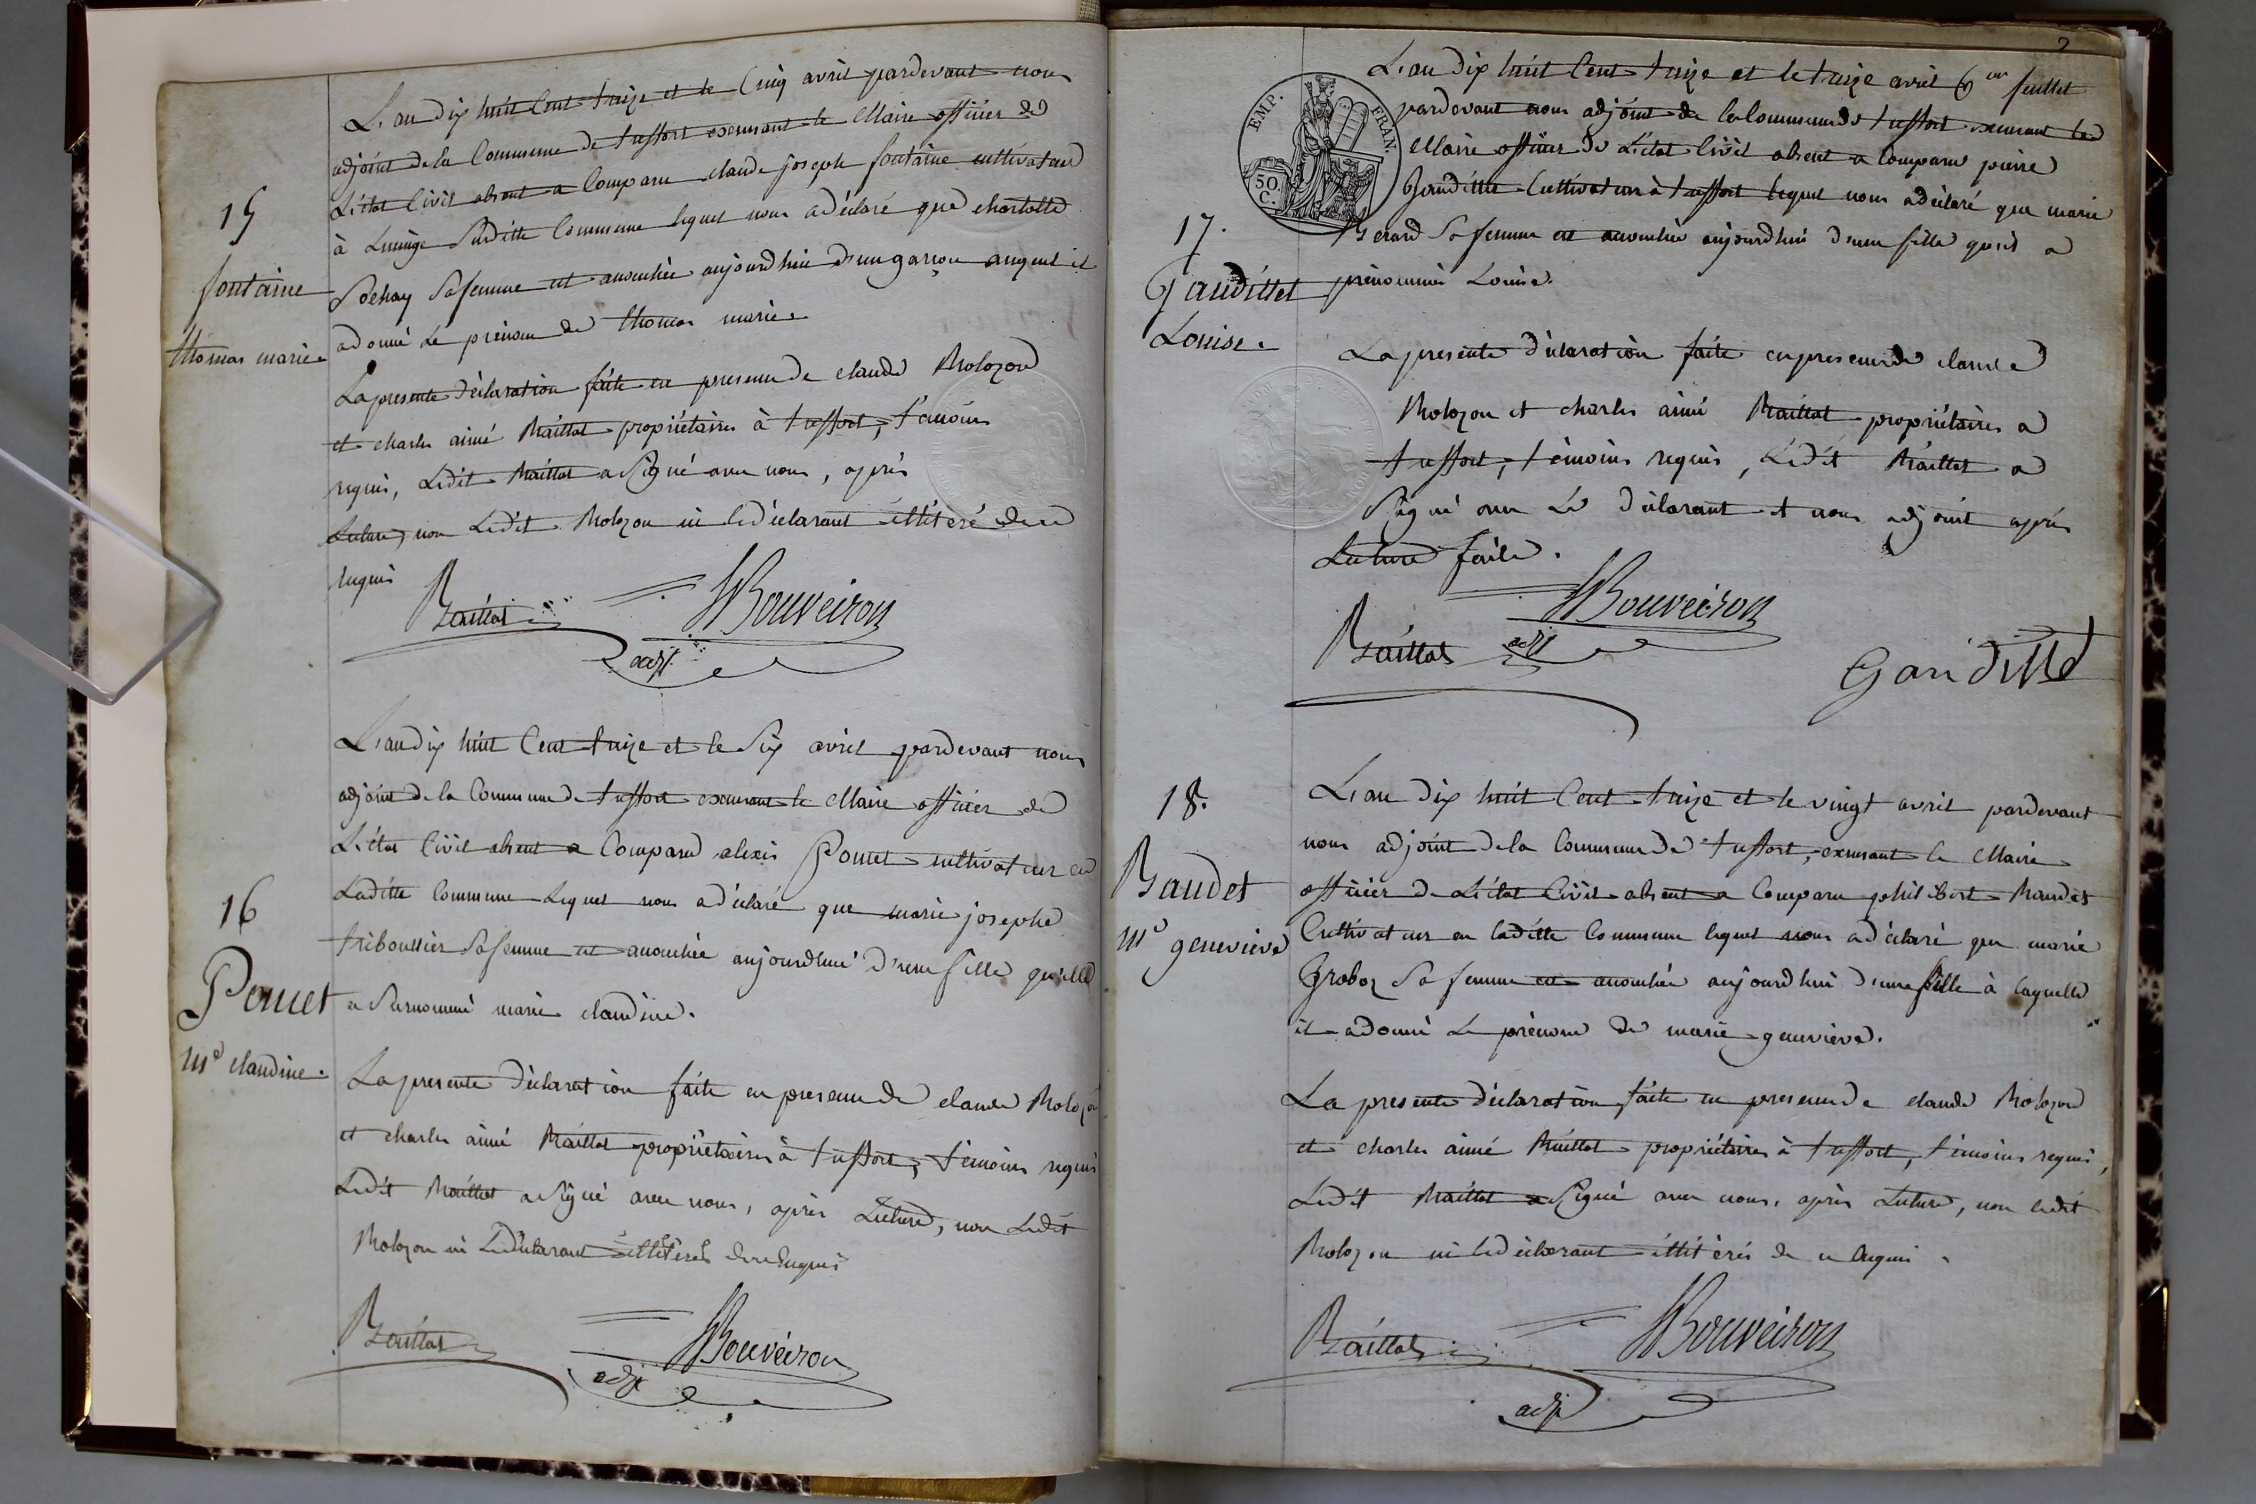 15
fontaine
thomas marie.
L'an dix huit Cent treize et le Cinq avril pardevant nous
adjoint de la Commune de treffort exerçant le Maire officier de
L'état Civil absent a Comparu claude joseph fontaine cultivateur
à Lucinge Sudite Commune lequel nous a déclaré que charlotte
sa femme est accouchée aujourdhui d'un garçon auquel il
a donné Le prénom de thomas marie.
La presente déclaration faite en presence de claude Molozon
et charles aimé Maillat propriétaires à treffort, témoins
requis, Ledit Maillat a Signé avec nous, après
Lecture, non Ledit Molozon ni le déclarant illiteré de ce
requis
Baillat
Bouveiron
adjt
16
Pomet
Me claudine.
L'an dix huit Cent treize et le Six avril pardevant nous
adjoint de la Commune de treffort exerçant le Maire officier de
L'état Civil absent a Comparu alexis Pomet cultivateur en
Ladite Commune Lequel nous a déclaré que marie josephe
triboullier Sa femme est accouchée aujourdhui d'une fille qu'elle
a Surnommé marie claudine.
La presente déclaration faite en presence de claude Molozon
et charles aimé Maillat propriétaires à treffort, témoins requis
Ledit Maillat a Signé avec nous, après Lecture, non Ledit
Molozon ni Le déclarant illiterés de ce Enquis
Baillat
Bouveiron
adjt
2
EMP. FRAN.
50
C.
17.
Gaudillet
Louise.
L'an dix huit Cent treize et le treize avril feuillet
pardevant nous adjoint de la Commune de treffort exerçant le
Maire officier de L'état Civil absent a Comparu pierre
Gaudille Cultivateur à treffort lequel nous a déclaré que marie
Berard Sa femme est accouchée aujourdhui d'une fille qu'il a
prénommé Louise.
La presente déclaration faite en presence de claude
Molozon et charles aimé Maillat propriétaires a
treffort, témoins requis, Ledit Maillat a
Signé avec Le déclarant et nous adjoint après
Lecture faite.
Baillat
Bouveiron
adjt
Gaudille
18.
Baudet
Me geneviève
L'an dix huit Cent treize et le vingt avril pardevant
nous adjoint de la Commune de treffort, exerçant le Maire
officier de L'état Civil absent a Comparu philibert Baudet
Cultivateur en ladite Commune lequel nous a déclaré que marie
Groboz Sa femme est accouchée aujourdhui d'une fille à laquelle
il a donné Le prénom de marie geneviève.
La presente déclaration faite en presence de claude Molozon
et charles aimé Maillat propriétaires à treffort, témoins requis,
Ledit Maillat a Signé avec nous, après Lecture, non ledit
Molozon ni le déclarant illiterés de ce Enquis.
Baillat
Bouveiron
adjt